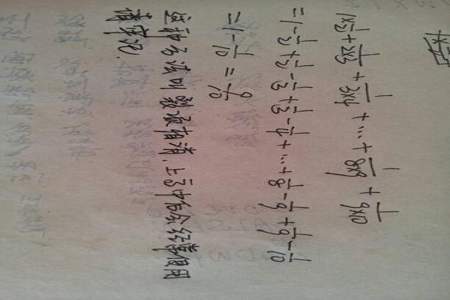 解
1/1×2 + 1/2×3 + 1/3×4 + ··· + 1/8×9 + 1/9×10
=1 - 1/2 + 1/2 - 1/3 + 1/3 - 1/4 + ··· + 1/8 - 1/9 + 1/9 - 1/10
=1 - 1/10 = 9/10
这种方法叫裂项相消,上高中后会经常使用
请牢记.